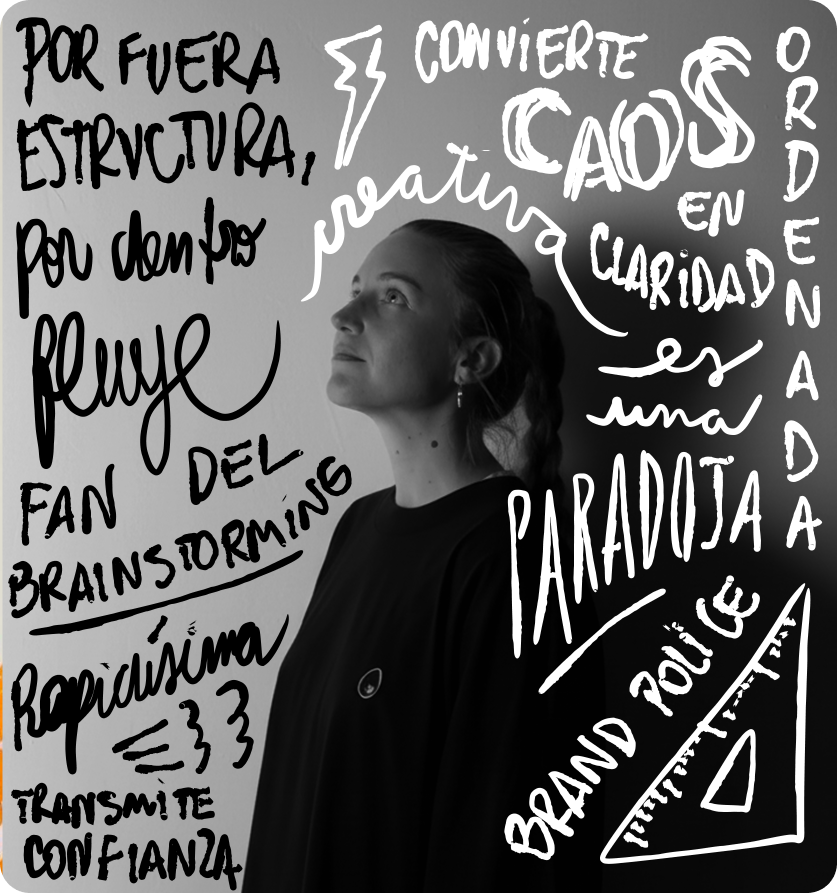 POR FUERA
ESTRUCTURA,
por dentro
fluye
FAN DEL
BRAINSTORMING
Rapidísima
TRANSMITE
CONFIANZA
creativa
CONVIERTE
CAOS
EN
CLARIDAD
es
una
PARADOJA
BRAND POLICE
ORDENADA